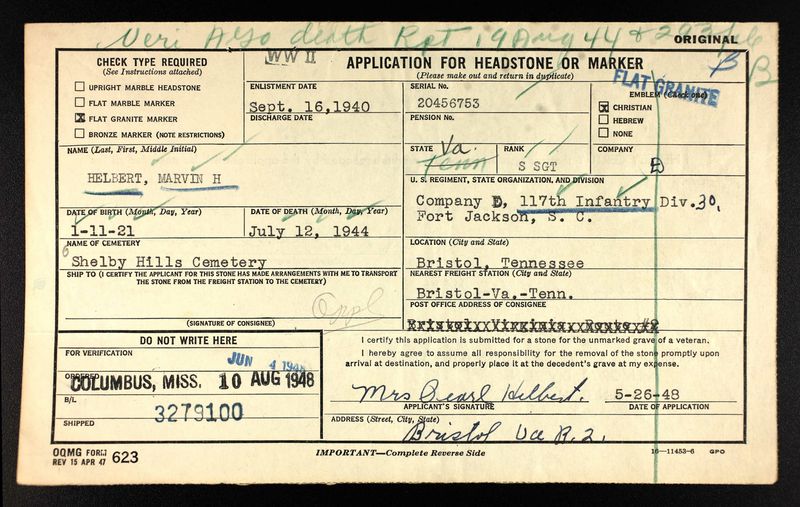 Veri Also death Rpt 19 Aug 44
ORIGINAL
WW II
B
B
CHECK TYPE REQUIRED
(See Instructions attached)
UPRIGHT MARBLE HEADSTONE
FLAT MARBLE MARKER
X FLAT GRANITE MARKER
BRONZE MARKER (NOTE RESTRICTIONS)
APPLICATION FOR HEADSTONE OR MARKER
(Please make out and return in duplicate)
FLAT GRANITE
ENLISTMENT DATE
Sept. 16,1940
DISCHARGE DATE
SERIAL No.
20456753
PENSION No.
EMBLEM (Check one)
X CHRISTIAN
HEBREW
NONE
NAME (Last, First, Middle Initial)
HELBERT, MARVIN H
STATE Va.
Tenn
RANK
S SGT
COMPANY
D
U. S. REGIMENT, STATE ORGANIZATION, AND DIVISION
Company D, 117th Infantry Div. 30,
Fort Jackson, S. C.
DATE OF BIRTH (Month, Day, Year)
1-11-21
DATE OF DEATH (Month, Day, Year)
July 12, 1944
NAME OF CEMETERY
Shelby Hills Cemetery
LOCATION (City and State)
Bristol, Tennessee
SHIP TO (I CERTIFY THE APPLICANT FOR THIS STONE HAS MADE ARRANGEMENTS WITH ME TO TRANSPORT
THE STONE FROM THE FREIGHT STATION TO THE CEMETERY)
(SIGNATURE OF CONSIGNEE)
NEAREST FREIGHT STATION (City and State)
Bristol-Va.-Tenn.
POST OFFICE ADDRESS OF CONSIGNEE
Bristol, Virginia, Route #2
DO NOT WRITE HERE
FOR VERIFICATION
JUN 4 1948
ORDERED
COLUMBUS, MISS. 10 AUG 1948
B/L
3279100
SHIPPED
I certify this application is submitted for a stone for the unmarked grave of a veteran.
I hereby agree to assume all responsibility for the removal of the stone promptly upon
arrival at destination, and properly place it at the decedent's grave at my expense.
Mrs Pearl Helbert. 5-26-48
APPLICANT'S SIGNATURE DATE OF APPLICATION
ADDRESS (Street, City, State)
Bristol Va R.2.
OQMG FORM 623
REV 15 APR 47
IMPORTANT—Complete Reverse Side
16—11453-6 GPO